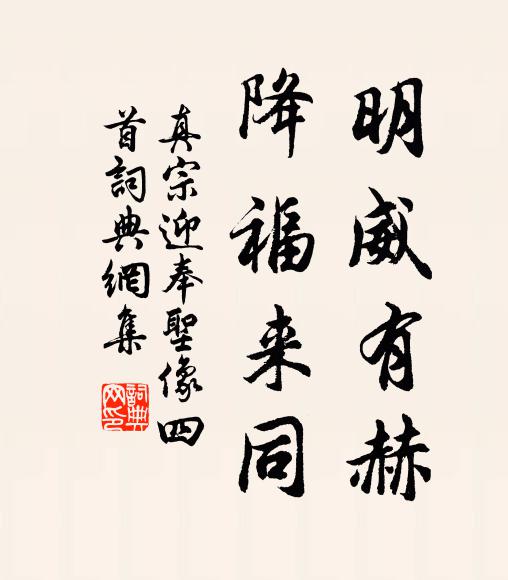 明威有赫
降福来同
真宗迎奉聖像四
首詞典網集
詞典
网印